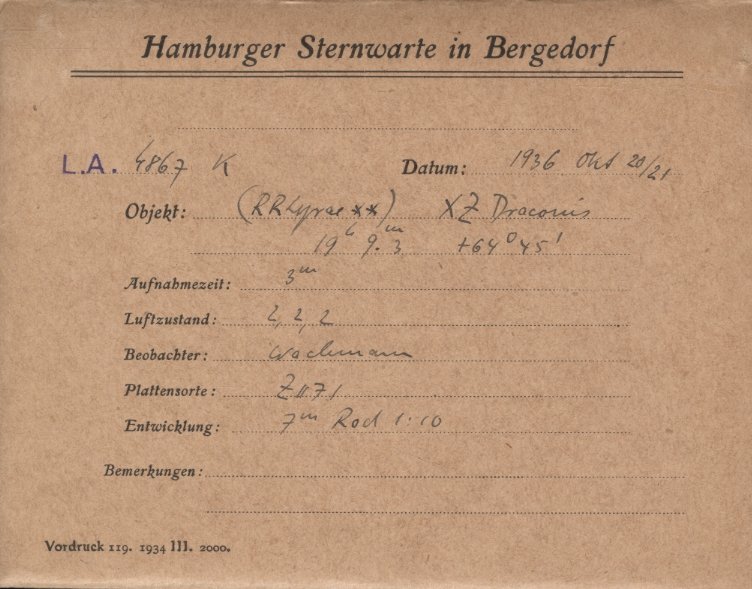 Hamburger Sternwarte in Bergedorf
L.A. 4867 K Datum: 1936 Okt 20/21
Objekt: (RR Lyrae **) XZ Draconis
19h 9.m3 +64° 45'
Aufnahmezeit: 3m
Luftzustand: 2, 2, 2
Beobachter: Wachmann
Plattensorte:
Entwicklung: 7m Rod 1:10
Bemerkungen:
Vordruck 119. 1934 III. 2000.